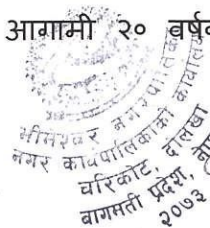 आगामी २० वर्ष
भीमेश्वर नगरपालिका
नगर कार्यपालिकाको कार्यालय
चरिकोट, दोलखा
बागमती प्रदेश,
२०७३